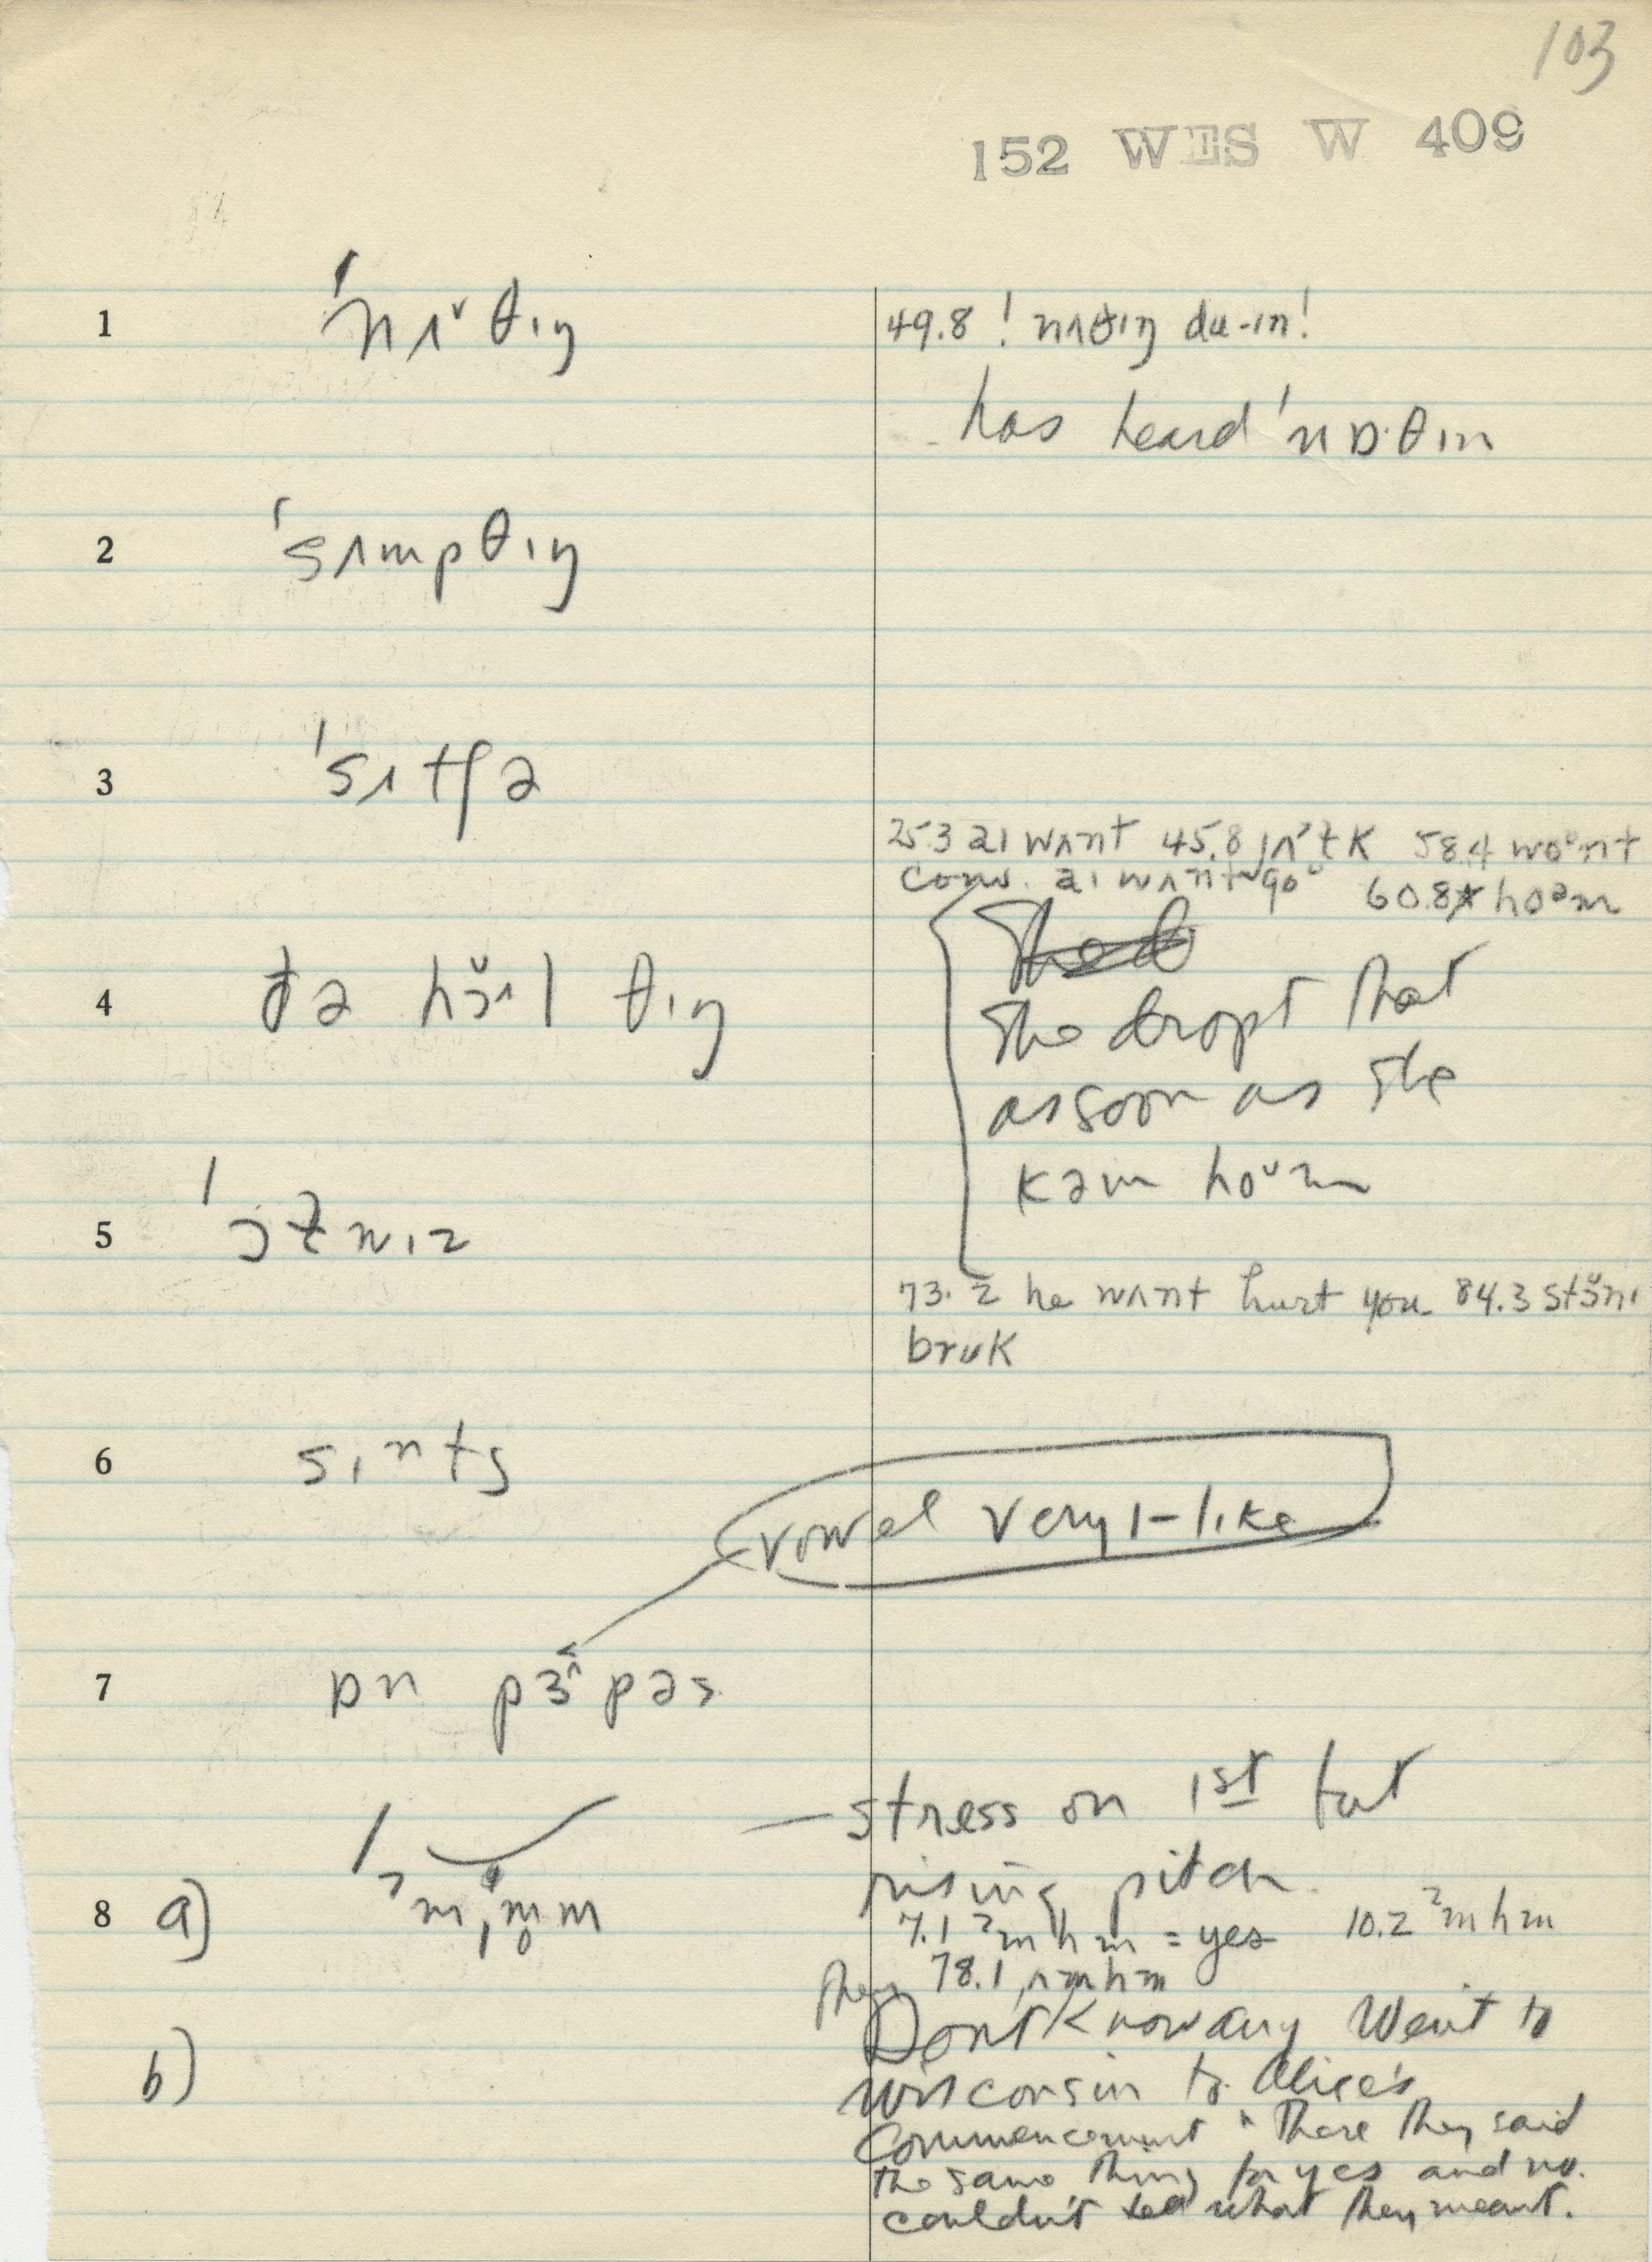 103
152 WES W 409
1 ˈnʌ˅θɪŋ
49.8 ! nʌθɪŋ du-ɪn!
has heard ˈnɒ·θɪn
2 ˈsʌmpθɪŋ
3 ˈsʌtʃə
25.3 aɪ wʌnt 45.8 58.4 woᶷnt
conv. aɪ wʌnt go 60.8 hoᶷm
4 ðə hɔˆl θɪŋ
She dropt that
as soon as she
kəm hoᶷm
5 ˈɔt̬nɪz
73.2 he wʌnt hurt you. 84.3
brʊk
6 sɪnts
vowel very ɪ-like
7 ɒn pɜˆpəs
— stress on 1st but
rising pitch.
8 a) ˈʔmˌm̥m
7.1 ʔmhm = yes 10.2 ʔmhm
78.1 ʌmhm
b)
Don't know any Went to
Wisconsin to Alice's
Commencement "There they said
the same thing for yes and no.
couldn't tell what they meant.